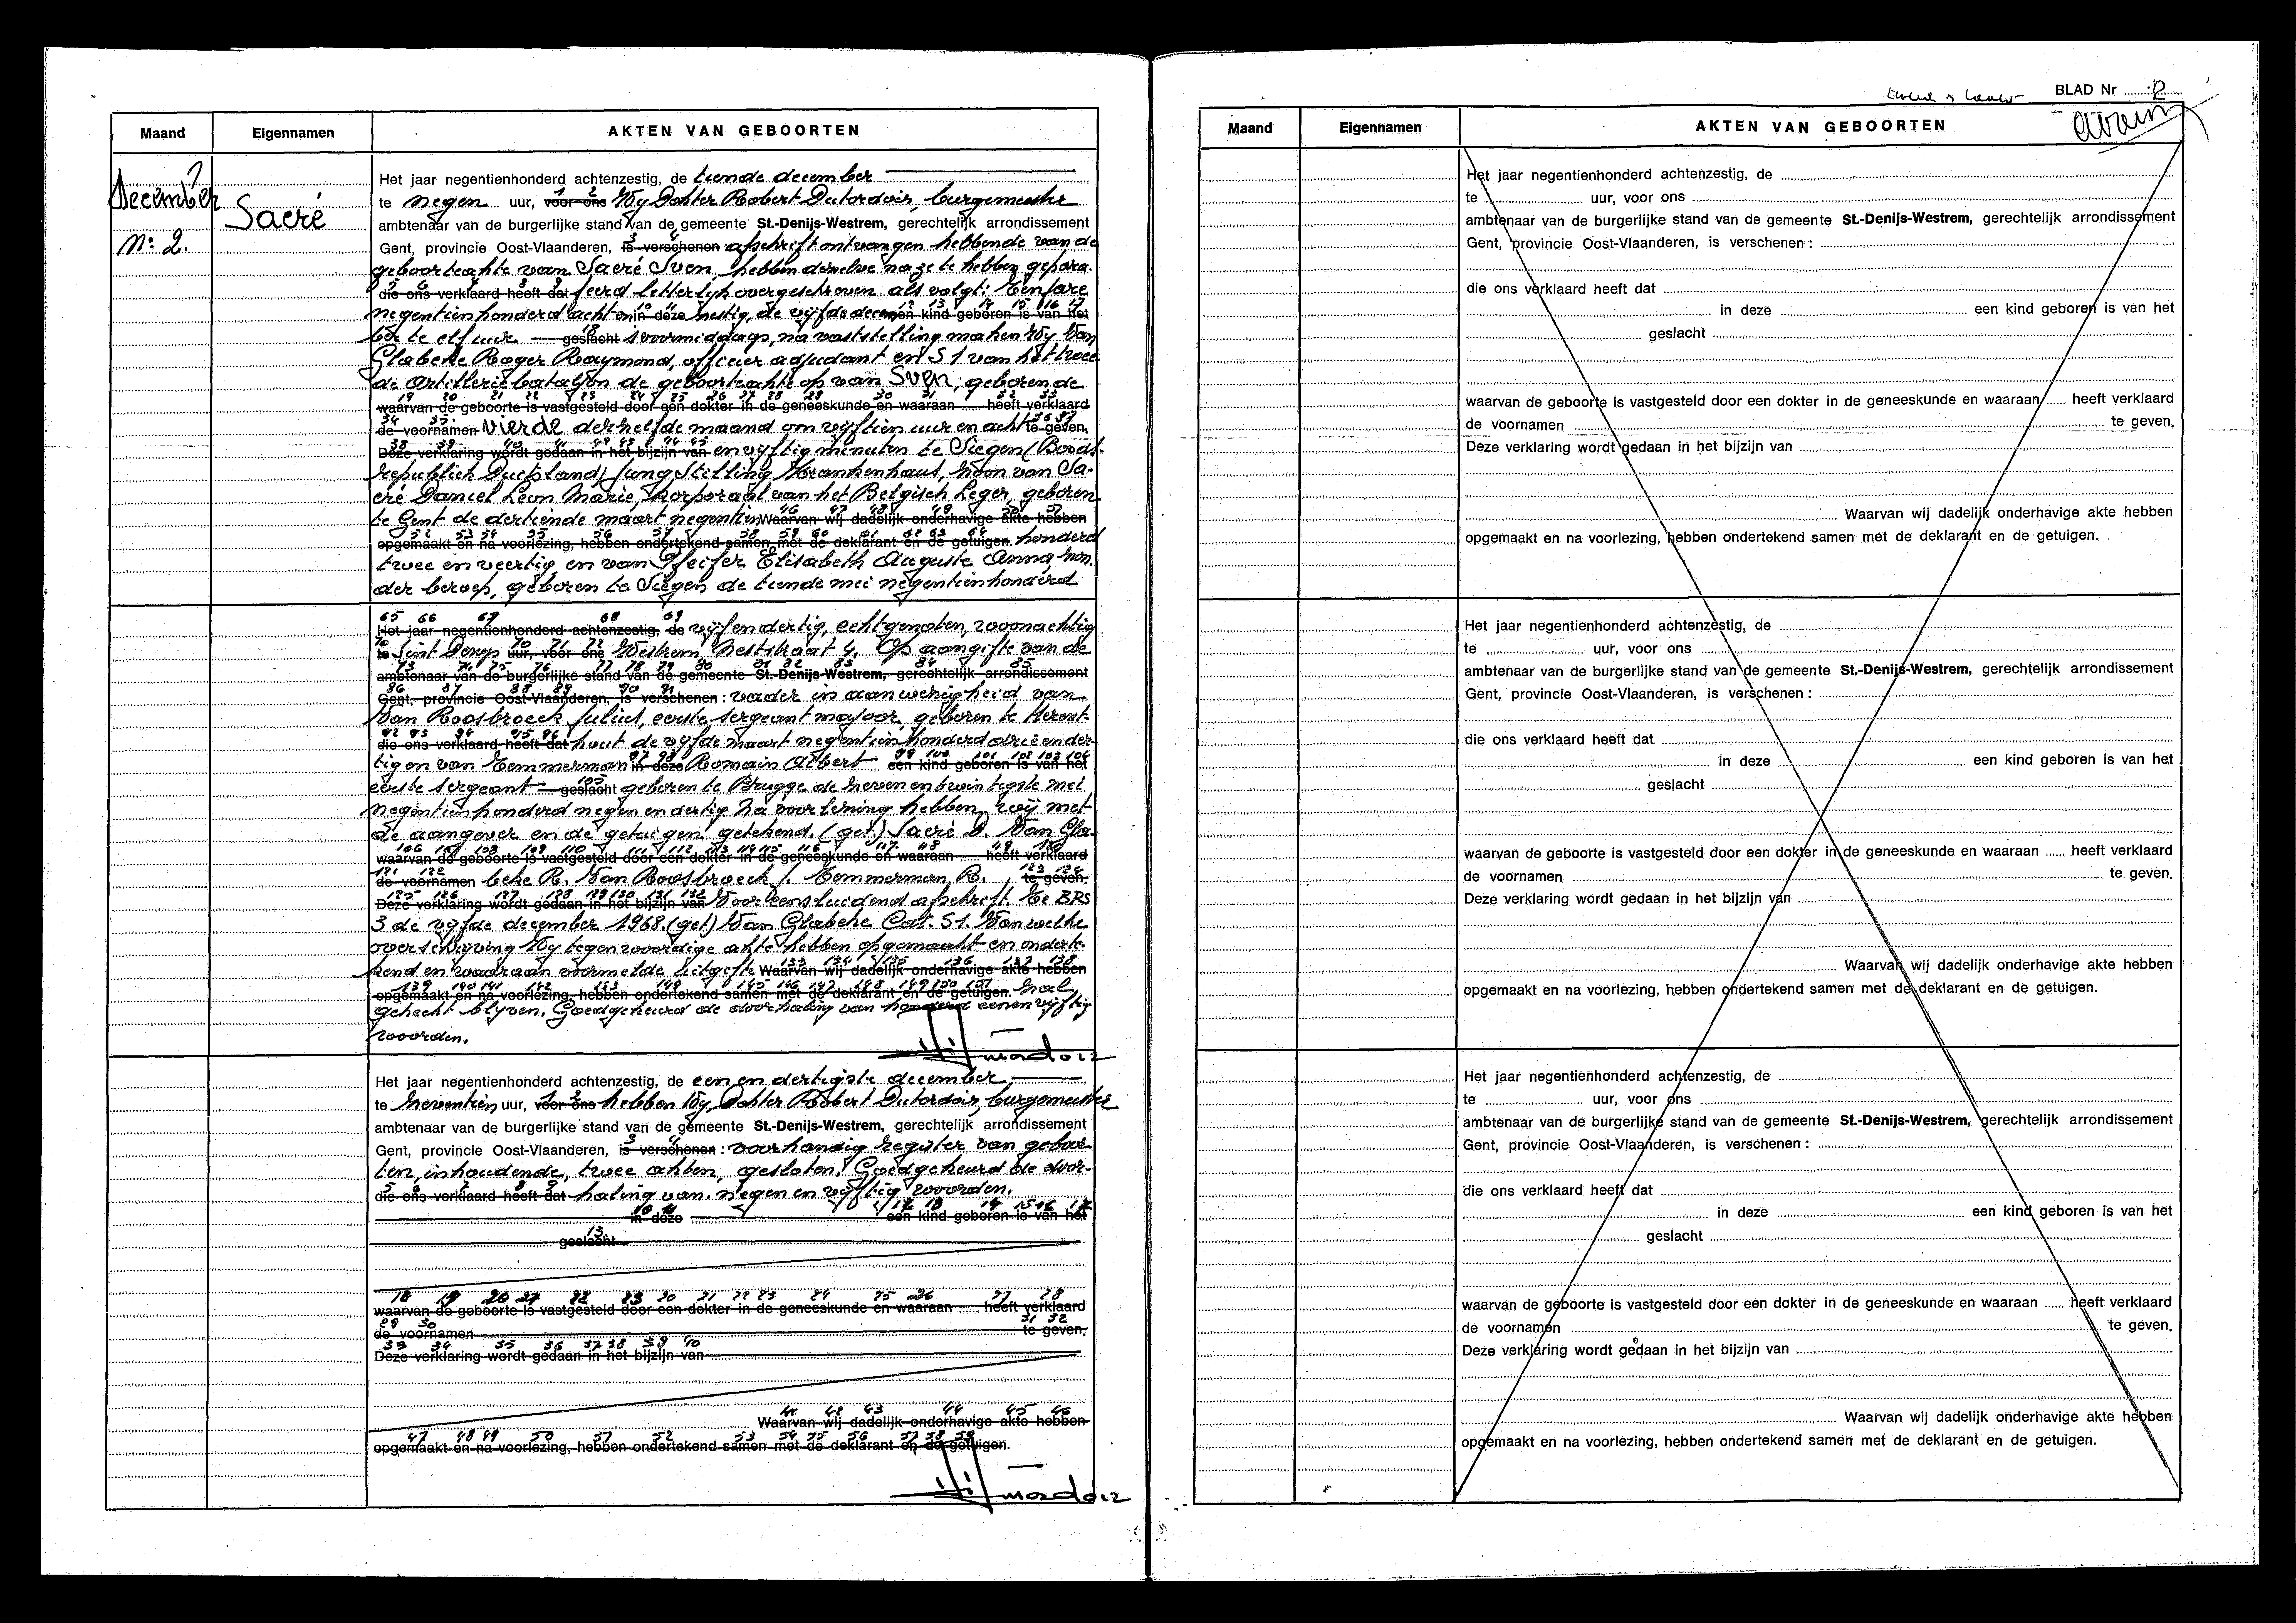 Maand Eigennamen AKTEN VAN GEBOORTEN
December
Sacré
N: 2.
Het jaar negentienhonderd achtenzestig, de tiende december
te negen uur, voor ons Wij Dokter Robert Dutordoir, burgemeester
ambtenaar van de burgerlijke stand van de gemeente St.-Denijs-Westrem, gerechtelijk arrondissement
Gent, provincie Oost-Vlaanderen, is verschenen afschrift ontvangen hebbende van de
geboorteakte van Sacré Sven, hebben dezelve na ze te hebben gepara-
die ons verklaard heeft dat feerd letterlijk overgeschreven als volgt: Een jare
negentienhonderd achten in deze zestig, de vijfde decem een kind geboren is van het
ber te elf uur geslacht s voormiddags, na vaststelling maken Wij Van
Glabeke Roger Raymond, officier adjudant en S1 van het twee
de Artilleriebataljon de geboorteakte op van Sven, geboren de
waarvan de geboorte is vastgesteld door een dokter in de geneeskunde en waaraan ..... heeft verklaard
de voornamen vierde derzelfde maand om vijftien uur en acht te geven.
Deze verklaring wordt gedaan in het bijzijn van en vijftig minuten te Siegen (Bonds-
republiek Duitsland) Jung Stilling Krankenhaus, zoon van Sa-
cré Daniel Leon Marie, korporaal van het Belgisch Leger, geboren
te Gent de dertiende maart negentien Waarvan wij dadelijk onderhavige akte hebben
opgemaakt en na voorlezing, hebben ondertekend samen met de deklarant en de getuigen. honderd
twee en veertig en van Pfeifer Elisabeth Auguste Anna, zon-
der beroep, geboren te Siegen de tiende mei negentienhonderd
Het jaar negentienhonderd achtenzestig, de vijfendertig, echtgenoten, woonachtig
te Sint Denijs uur, voor ons Westrem, Neststraat 4. Op aangifte van de
ambtenaar van de burgerlijke stand van de gemeente St.-Denijs-Westrem, gerechtelijk arrondissement
Gent, provincie Oost-Vlaanderen, is verschenen : vader in aanwezigheid van
Van Roosbroeck Julius, eerste sergeant majoor, geboren te Herent-
die ons verklaard heeft dat hout de vijfde maart negentienhonderd drie ender-
tig en van Temmerman in deze Romain Albert een kind geboren is van het
eerste sergeant geslacht geboren te Brugge de zeven en twintigste mei
negentienhonderd negen en dertig. Na voorlezing hebben wij met
de aangever en de getuigen getekend. (get.) Sacré D. Van Gla-
waarvan de geboorte is vastgesteld door een dokter in de geneeskunde en waaraan ..... heeft verklaard
de voornamen beke R. Van Roosbroeck J. Temmerman R. te geven.
Deze verklaring wordt gedaan in het bijzijn van Voor eensluidend afschrift. Te BPS
3 de vijfde december 1968. (get) Van Glabeke Cat. S1. Van welke
overschrijving Wij tegenwoordige akte hebben opgemaakt en onderte-
kend en waaraan voormelde uitgifte Waarvan wij dadelijk onderhavige akte hebben
opgemaakt en na voorlezing, hebben ondertekend samen met de deklarant en de getuigen. zal
gehecht blijven. Goedgekeurd de doorhaling van honderd eenen vijftig
woorden.
Het jaar negentienhonderd achtenzestig, de een en dertigste december
te zeventien uur, voor ons hebben Wij, Dokter Robert Dutordoir, burgemeester
ambtenaar van de burgerlijke stand van de gemeente St.-Denijs-Westrem, gerechtelijk arrondissement
Gent, provincie Oost-Vlaanderen, is verschenen : voorhandig register van geboor
ten, inhoudende, twee akten, gesloten. Goedgekeurd de door-
die ons verklaard heeft dat haling van negen en vijftig woorden.
in deze een kind geboren is van het
geslacht
waarvan de geboorte is vastgesteld door een dokter in de geneeskunde en waaraan ..... heeft verklaard
de voornamen te geven.
Deze verklaring wordt gedaan in het bijzijn van
Waarvan wij dadelijk onderhavige akte hebben
opgemaakt en na voorlezing, hebben ondertekend samen met de deklarant en de getuigen.
BLAD Nr 2
Maand Eigennamen AKTEN VAN GEBOORTEN
Het jaar negentienhonderd achtenzestig, de
te uur, voor ons
ambtenaar van de burgerlijke stand van de gemeente St.-Denijs-Westrem, gerechtelijk arrondissement
Gent, provincie Oost-Vlaanderen, is verschenen :
die ons verklaard heeft dat
in deze een kind geboren is van het
geslacht
waarvan de geboorte is vastgesteld door een dokter in de geneeskunde en waaraan ..... heeft verklaard
de voornamen te geven.
Deze verklaring wordt gedaan in het bijzijn van
Waarvan wij dadelijk onderhavige akte hebben
opgemaakt en na voorlezing, hebben ondertekend samen met de deklarant en de getuigen.
Het jaar negentienhonderd achtenzestig, de
te uur, voor ons
ambtenaar van de burgerlijke stand van de gemeente St.-Denijs-Westrem, gerechtelijk arrondissement
Gent, provincie Oost-Vlaanderen, is verschenen :
die ons verklaard heeft dat
in deze een kind geboren is van het
geslacht
waarvan de geboorte is vastgesteld door een dokter in de geneeskunde en waaraan ..... heeft verklaard
de voornamen te geven.
Deze verklaring wordt gedaan in het bijzijn van
Waarvan wij dadelijk onderhavige akte hebben
opgemaakt en na voorlezing, hebben ondertekend samen met de deklarant en de getuigen.
Het jaar negentienhonderd achtenzestig, de
te uur, voor ons
ambtenaar van de burgerlijke stand van de gemeente St.-Denijs-Westrem, gerechtelijk arrondissement
Gent, provincie Oost-Vlaanderen, is verschenen :
die ons verklaard heeft dat
in deze een kind geboren is van het
geslacht
waarvan de geboorte is vastgesteld door een dokter in de geneeskunde en waaraan ..... heeft verklaard
de voornamen te geven.
Deze verklaring wordt gedaan in het bijzijn van
Waarvan wij dadelijk onderhavige akte hebben
opgemaakt en na voorlezing, hebben ondertekend samen met de deklarant en de getuigen.